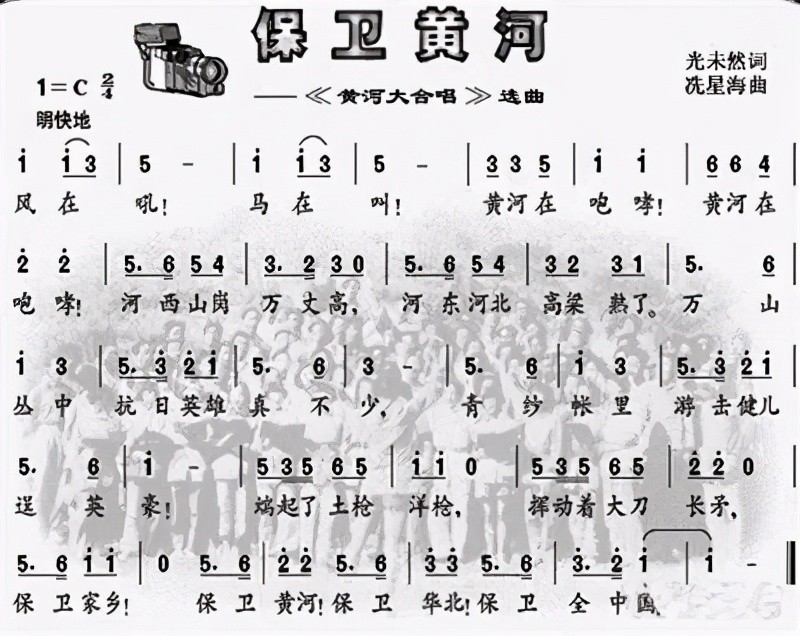 保卫黄河
光未然词
1=C 2/4
——《黄河大合唱》选曲
冼星海曲
明快地
i i3 | 5 - | i i3 | 5 - | 3 3 5 | i i | 6 6 4 |
风在 吼! 马在 叫! 黄河在 咆哮! 黄河在
2̇ 2̇ | 5. 6 5 4 | 3. 2 3 0 | 5. 6 5 4 | 3 2 3 1 | 5. 6 |
咆哮! 河西山岗 万丈高, 河东河北 高梁熟了。 万山
i 3 | 5. 3̇ 2̇ i | 5. 6 | 3 - | 5. 6 | i 3 | 5. 3̇ 2̇ i |
丛中 抗日英雄 真不少, 青纱帐里 游击健儿
5. 6 | i - | 5 3 5 6 5 | i i 0 | 5 3 5 6 5 | 2̇ 2̇ 0 |
逞英豪! 端起了土枪 洋枪, 挥动着大刀 长矛,
5. 6 i i | 0 5. 6 | 2̇ 2̇ 5. 6 | 3̇ 3̇ 5. 6 | 3̇. 2̇ i | i - ‖
保卫家乡! 保卫 黄河! 保卫 华北! 保卫 全中国。